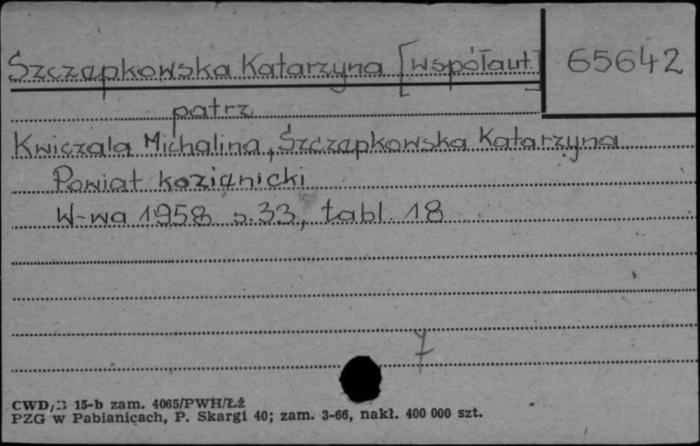 Szczapkowska Katarzyna [współaut.] 65642
patrz
Kwiczala Michalina, Szczapkowska Katarzyna
Powiat kozienicki
W-wa 1958 s. 33, tabl. 18
7
CWD/3 15-b zam. 4065/PWH/Łź
PZG w Pabianicach, P. Skargi 40; zam. 3-66, nakł. 400 000 szt.